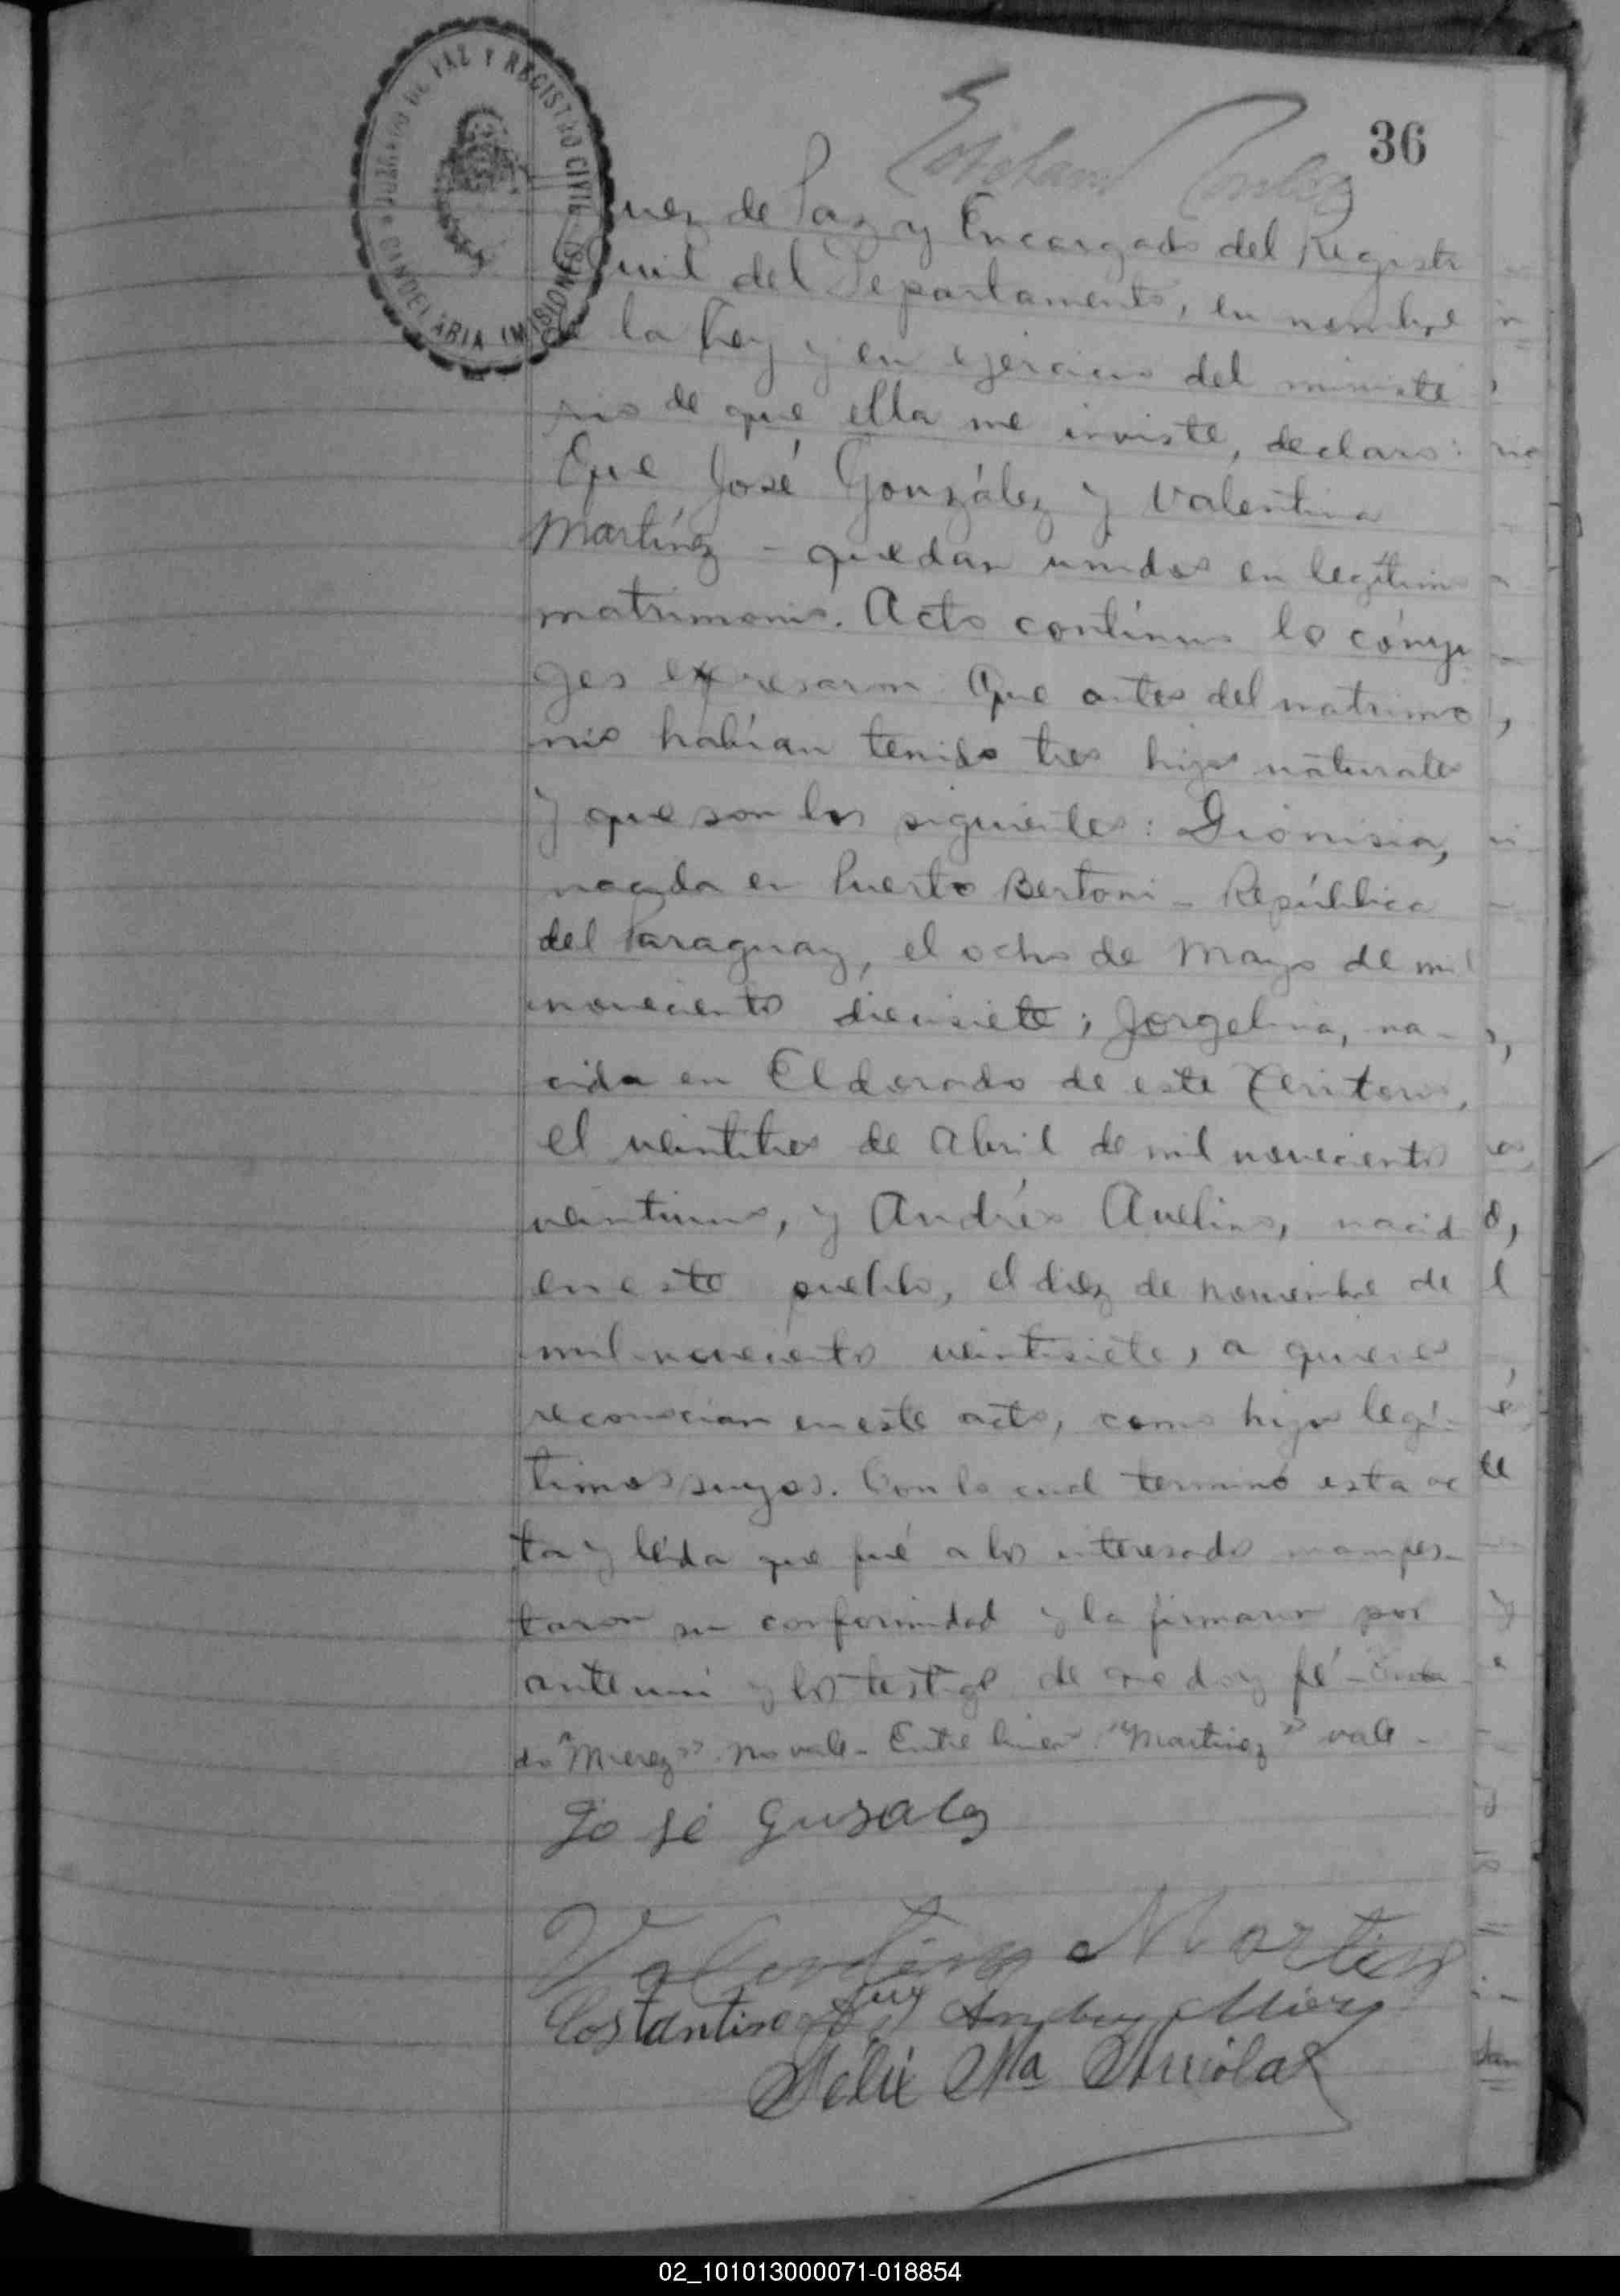 36
JUZGADO DE PAZ Y REGISTRO CIVIL
CANDELARIA (MISIONES)
Esteban
uez de Paz y Encargado del Registr
Civil del Departamento, en nombre
de la ley y en ejercicio del ministe
rio de que ella me inviste, declaro:
Que José González y Valentina
Martínez - quedan unidos en legítimo
matrimonio. Acto contínuo lo cónyu
ges expresaron: Que antes del matrimo
nio habían tenido tres hijos naturales
y que son los siguientes: Dionisia,
nacida en Puerto Bertoni - República
del Paraguay, el ocho de Mayo de mil
novecientos diecisiete; Jorgelina, na-
cida en Eldorado de este Territorio,
el veintitres de Abril de mil novecientos
veintiuno, y Andrés Avelino, nacid
en este pueblo, el diez de noviembre de
mil novecientos veintisiete, a quienes
reconocian en este acto, como hijos legí-
timos suyos. Con lo cual terminó esta ac
ta y leída que fué a los interesados manifes-
taron su conformidad y la firmaron por
ante mi y los testigos de que doy fé - Enta
do "Mierez" no vale - Entre linea "Martinez" vale -
José Gusalez
Valentina Martin
Costantino Andres Mierz
Félix Ma Arriola
02_101013000071-018854